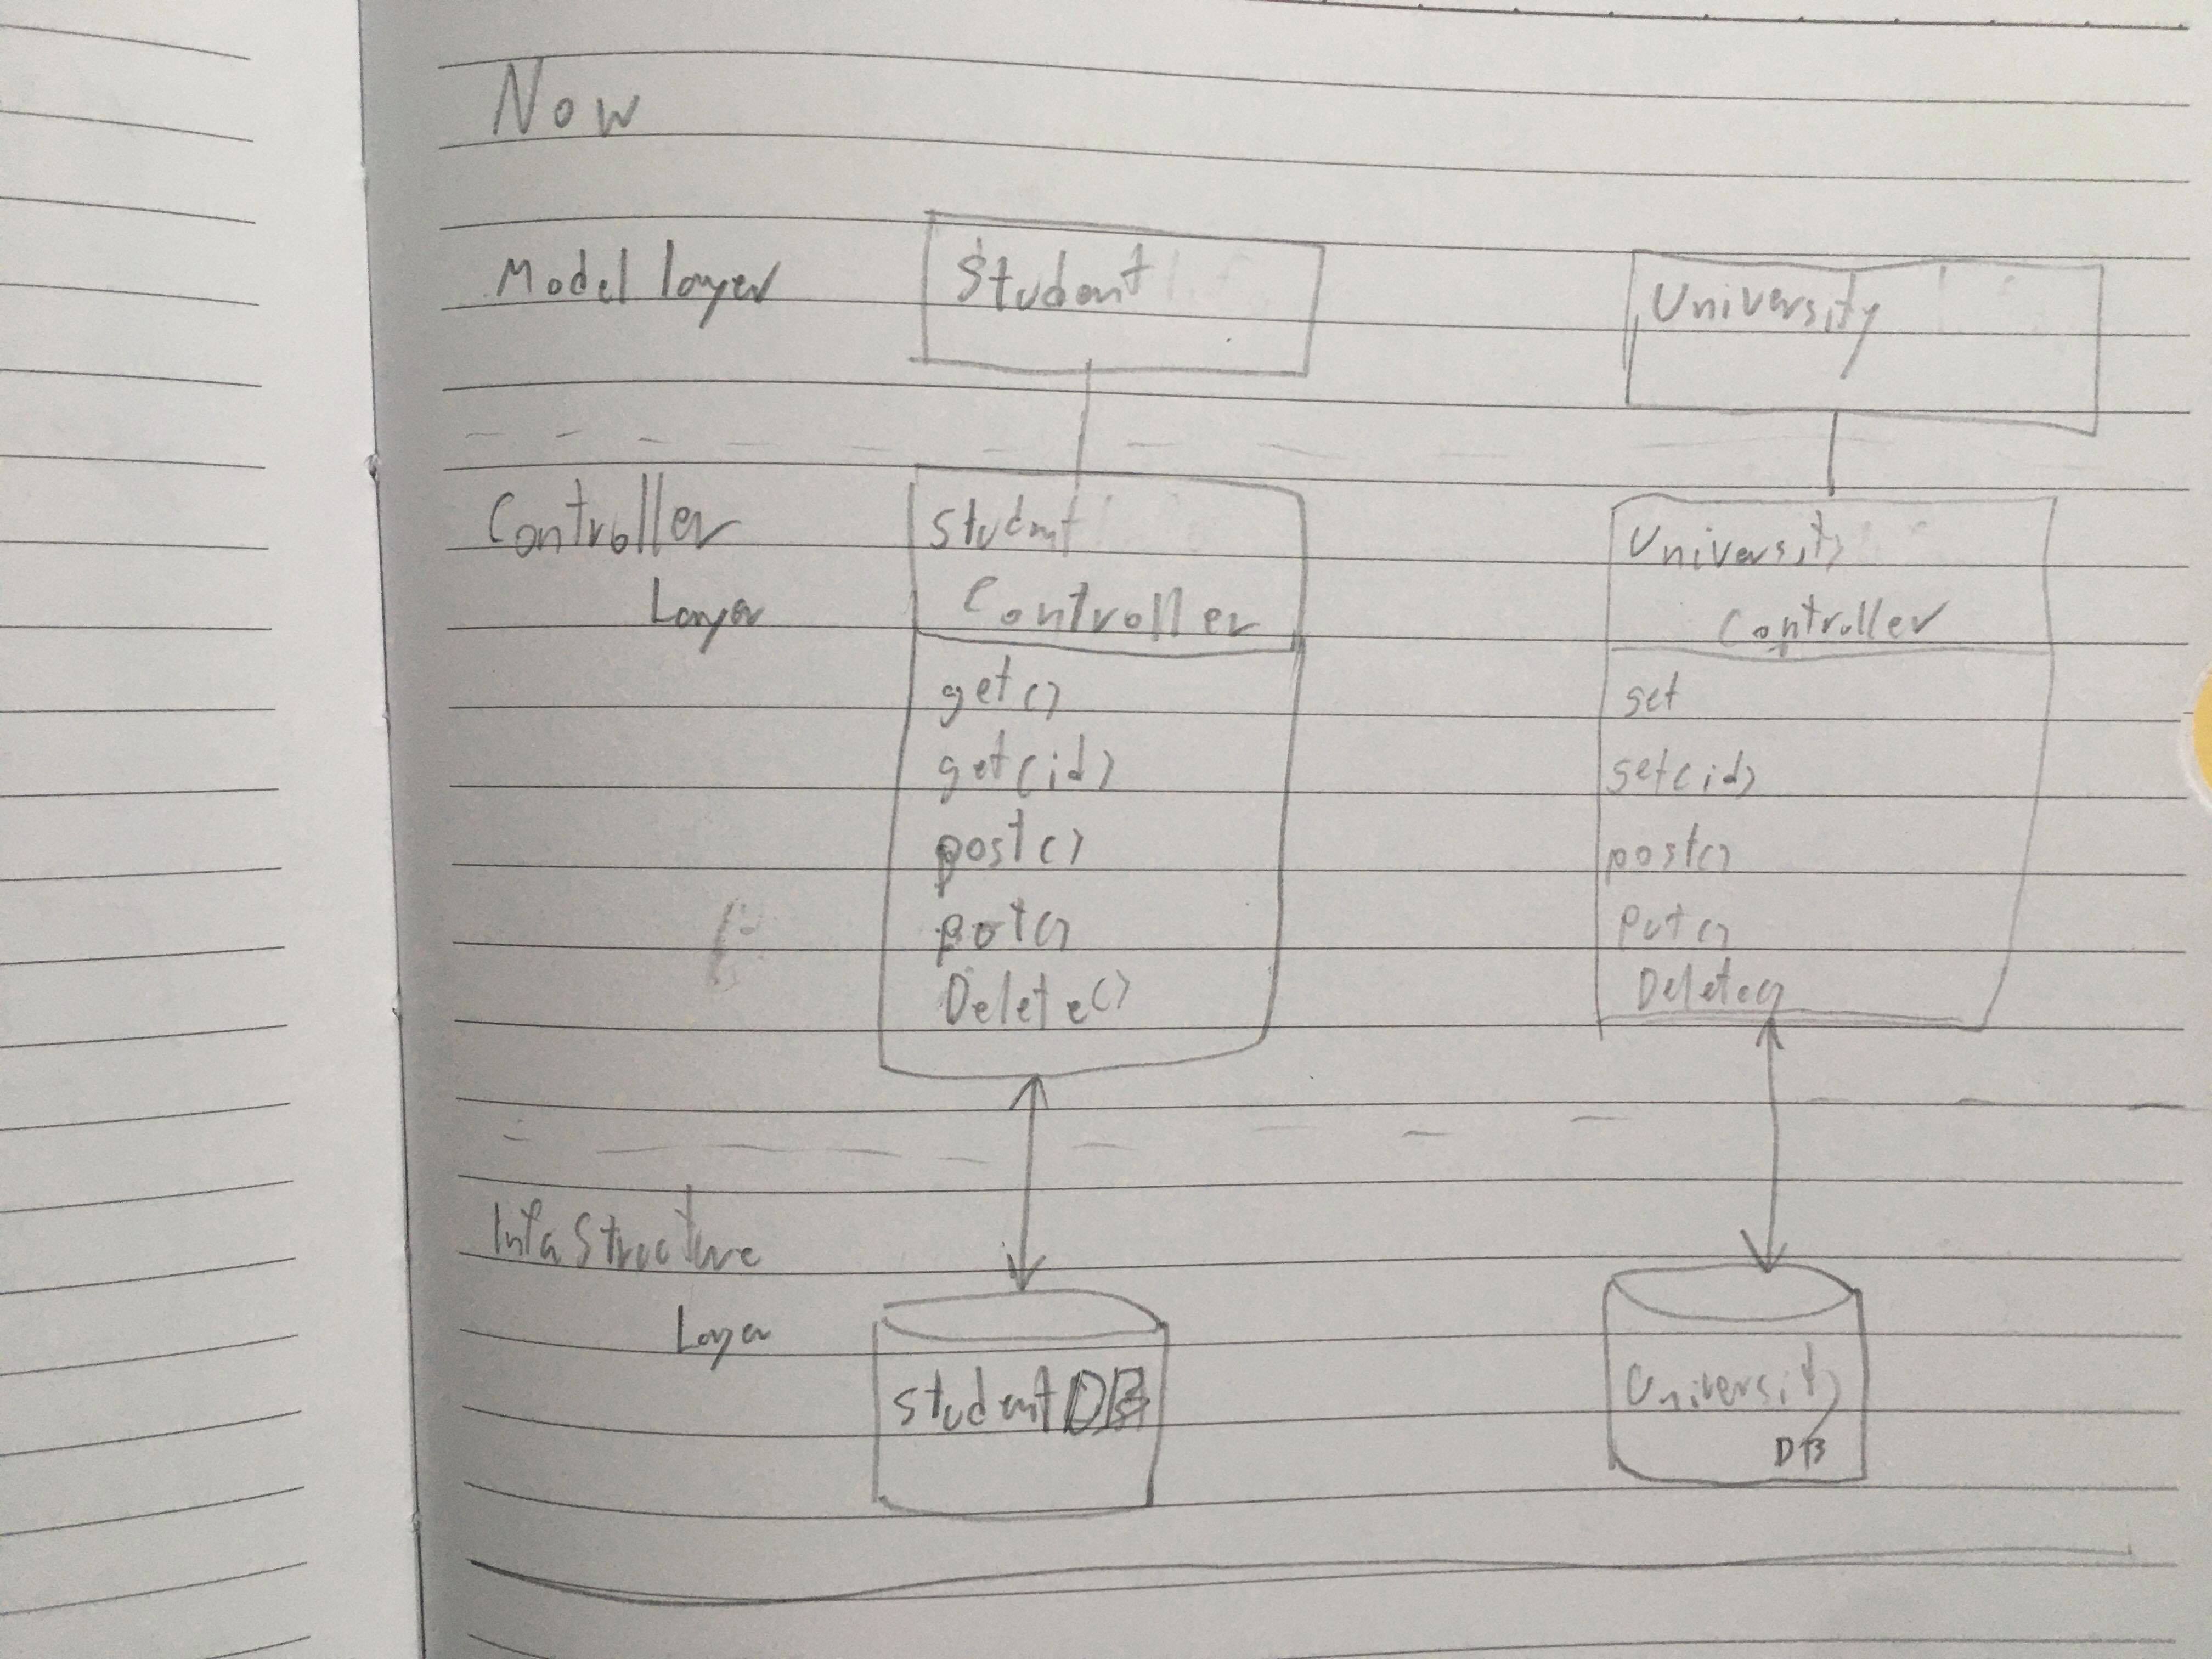 Now
Model layer
Student
University
Controller
Layer
Student
Controller
get()
get(id)
post()
put()
Delete()
University
Controller
get
get(id)
post()
put()
Delete()
InfaStructure
Layer
studentDB
University
DB